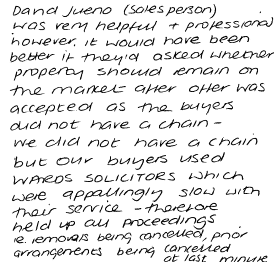 David Jueno (salesperson)
was very helpful + professional
however, it would have been
better if they'd asked whether
property should remain on
the market after offer was
accepted as the buyers
did not have a chain -
we did not have a chain
but our buyers used
WARDS SOLICITORS which
were appallingly slow with
their service - therefore
held up all proceedings
ie. removals being cancelled, prior
arrangements being cancelled
at last minute